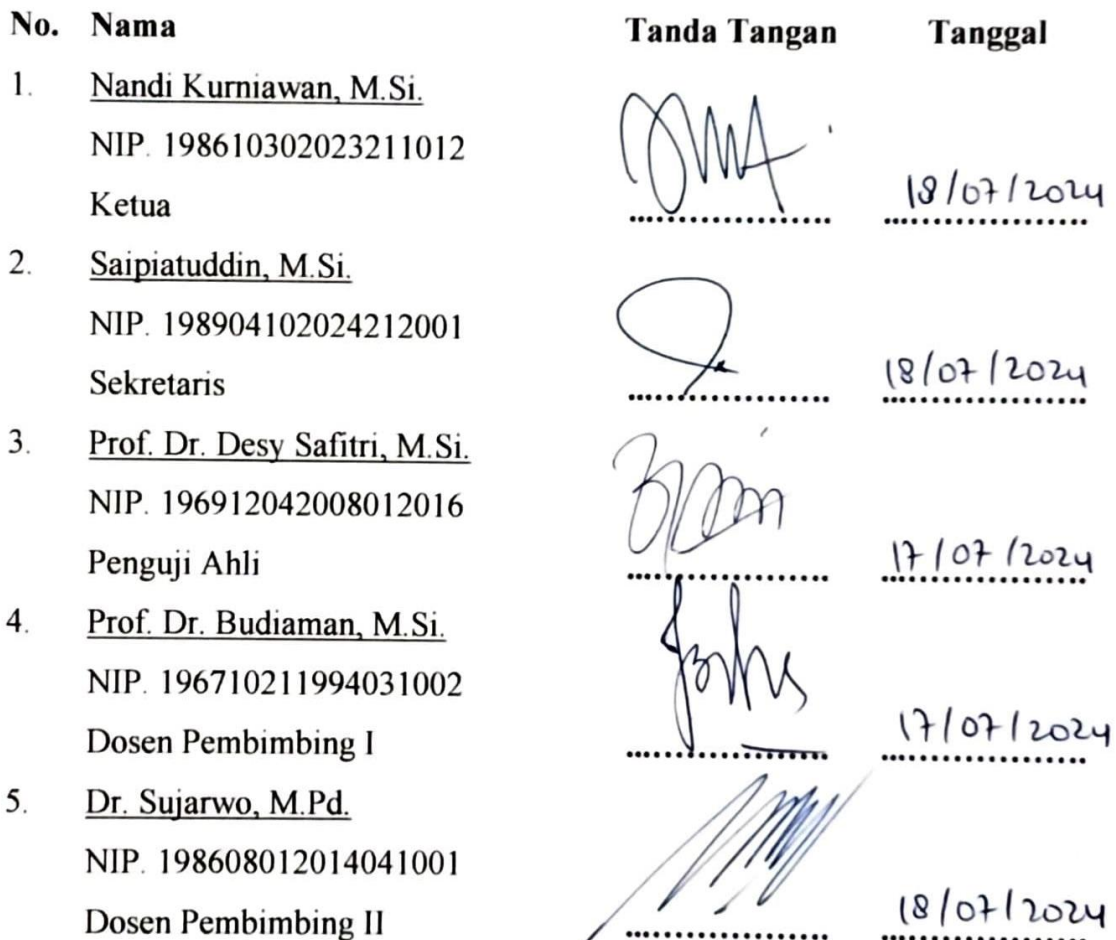 No. Nama Tanda Tangan Tanggal
1. Nandi Kurniawan, M.Si.
NIP. 198610302023211012
Ketua 18/07/2024
2. Saipiatuddin, M.Si.
NIP. 198904102024212001
Sekretaris 18/07/2024
3. Prof. Dr. Desy Safitri, M.Si.
NIP. 196912042008012016
Penguji Ahli 17/07/2024
4. Prof. Dr. Budiaman, M.Si.
NIP. 196710211994031002
Dosen Pembimbing I 17/07/2024
5. Dr. Sujarwo, M.Pd.
NIP. 198608012014041001
Dosen Pembimbing II 18/07/2024